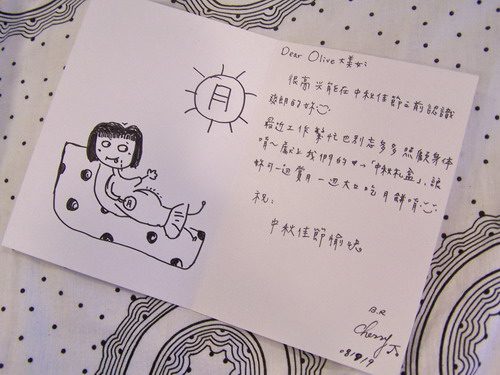 月
月
Dear Olive 大美女:
很高兴能在中秋佳節之前認識
爽朗的妳
最近工作繁忙也別忘多多照顧身體
唷~獻上我們的小小「中秋礼盒」,讓
妳可一邊賞月一邊大口吃月餅唷
祝:
中秋佳節愉快
B.R
Cherry